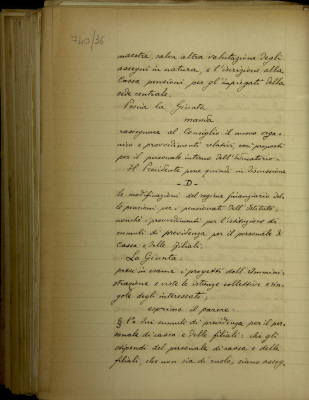 740/36
maestra, salva altra valutazione degli
assegni in natura, e l'iscrizione alla
Cassa pensioni per gl'impiegati della
sede centrale.
Poscia la Giunta
manda
rassegnare al Consiglio il nuovo orga-
nico e provvedimenti relativi, così proposti
per il personale interno dell'
Il Presidente pone quindi in discussione
- D -
le modificazioni del regime finanziario del-
le pensioni per i pensionati dell'Istituto,
nonché i provvedimenti per l'istituzione di
cumuli di previdenza per il personale di
Cassa e delle filiali.
La Giunta
presi in esame i progetti dell'Ammini-
strazione e viste le istanze collettive e sin-
gole degli interessati,
esprime il parere:
§ 1° Sui cumuli di previdenza per il per-
sonale di cassa e delle filiali: che gli
stipendi del personale di cassa e delle
filiali, che non sia di ruolo, siano asseg